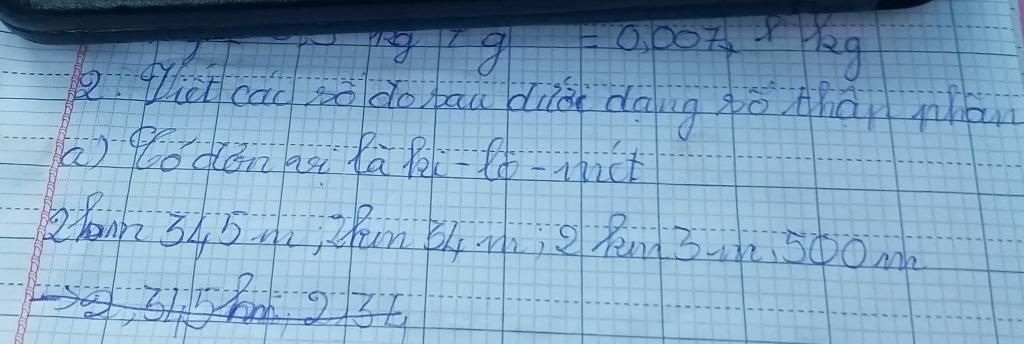 kg 7 g = 0,007 kg
2. Viết các số đo sau dưới dạng số thập phân
a) Có đơn vị là ki-lô-mét
2km 345 m; 2km 34 m; 2 km 3 m; 500 m
→ 2,345 km; 2,34